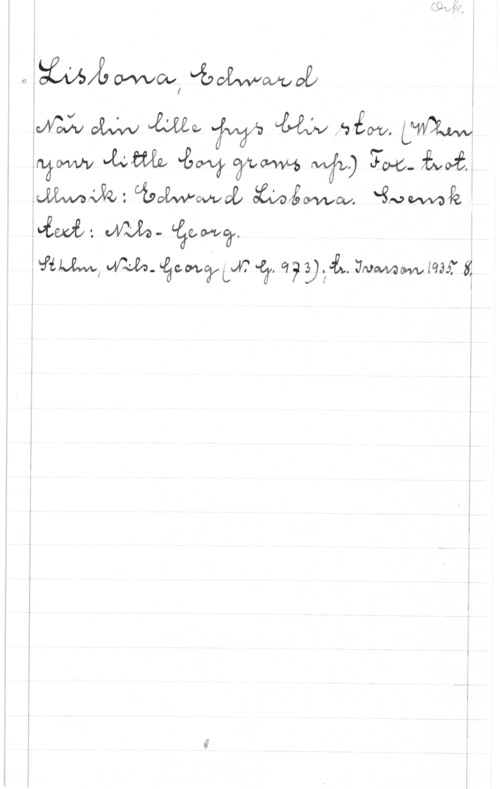 Ork.
Lisbona, Edward
När din lille frys blir stor. (When
your little boy grows up.) Fox-trot.
Musik: Edward Lisbona. Svensk
text: Nils-Georg.
Sthlm, Nils-Georg (N. G. 973); tr. Ivarson 1935. 8.